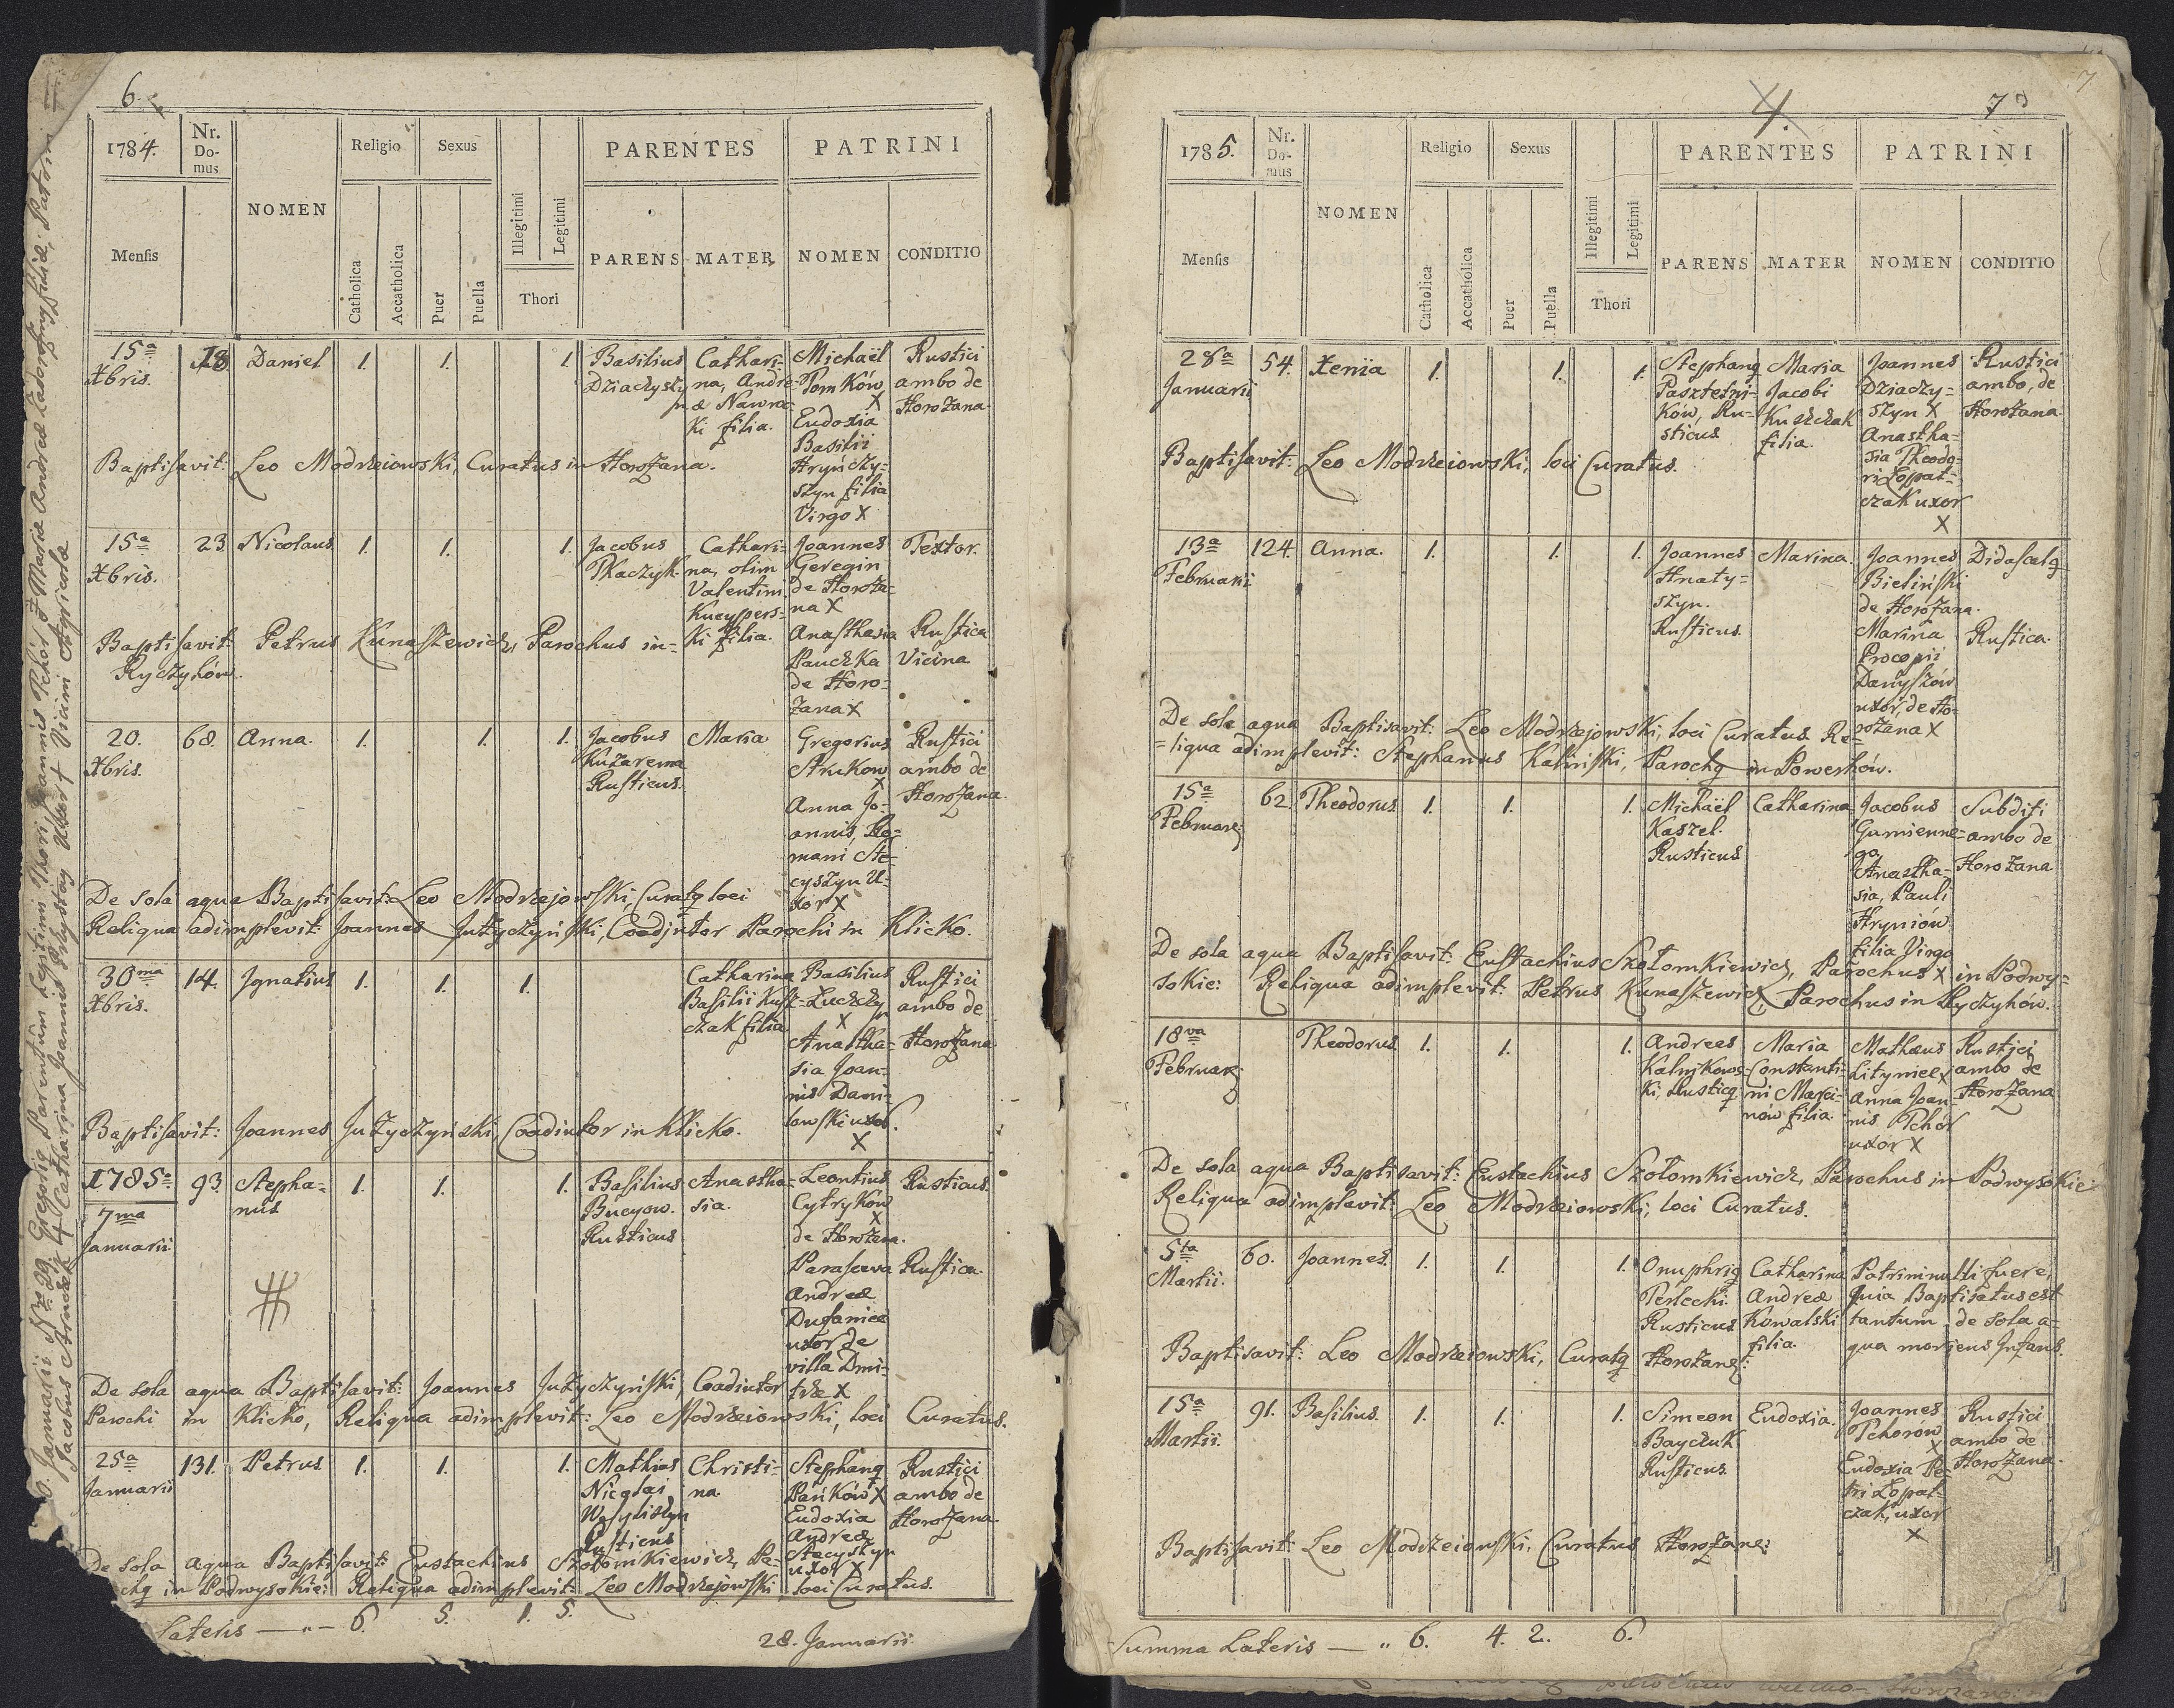 6.
1784.
Nr. Domus
NOMEN
Religio
Sexus
PARENTES
PATRINI
Mensis
Catholica
Accatholica
Puer
Puella
Illegitimi
Legitimi
Thori
PARENS
MATER
NOMEN
CONDITIO
15a Xbris.
18
Daniel
1.
1.
1.
Basilius
Dziaczyszyn
Cathari-
na, Andre-
æ Nawroc-
ki filia.
Michaël
Pomków
X
Eudoxia
Basilii
Hryńczy-
szyn filia
Virgo X
Rustici
ambo de
Horożana.
Baptisavit: Leo Modrzeiowski, Curatus in Horożana.
15a Xbris.
23.
Nicolaus
1.
1.
1.
Jacobus
Tkaczyk.
Cathari-
na, olim
Valentini
Kucypers-
ki filia.
Joannes
Geregin
de Horoża-
na X
Anasthasia
Pauczka
de Horo-
żana X
Textor.
Rustica
Vicina
Baptisavit: Petrus Kunaszewicz, Parochus in
Ryczyhów.
20. Xbris.
68.
Anna.
1.
1.
1.
Jacobus
Kużarema
Rusticus.
Maria
Gregorius
Strukow
X
Anna Jo-
annis Ro-
mani Ste-
cyszyn U-
xor X
Rustici
ambo de
Horożana.
De sola aqua Baptisavit: Leo Modrzejowski, Curatq loci
Reliqua adimplevit: Joannes Jużyczyński, Coadjutor Parochi in Klicko.
30ma Xbris.
14.
Ignatius
1.
1.
1.
Catharina
Basilii Kusz-
czak filia
Basilius
Łuczczyn
X
Anastha-
sia Joan-
nis Dani-
lowski uxor.
X
Rustici
ambo de
Horożana.
Baptisavit: Joannes Jużyczyński, Coadiutor in Klicko.
1785o
7ma Januarii
93.
Stepha-
nus
1.
1.
1.
Basilius
Bucyow.
Rusticus
Anastha-
sia.
Leontius
Cytryków
X
de Horożana.
Parasceva
Andreæ
Dufaniec
uxor de
villa Dmi-
trze X
Rusticus.
Rustica.
De sola aqua Baptisavit: Joannes Jużyczyński, Coadiutor
Parochi in Klicko, Reliqua adimplevit: Leo Modrzeiowski, loci Curatus.
25a Januarii
131.
Petrus
1.
1.
1.
Mathias
Nicolai
Wasyliszyn
Rusticus
Christi-
na
Stephanq
Pańków X
Eudoxia
Andreæ
Stecyszyn
uxor X
Rustici
ambo de
Horożana.
De sola aqua Baptisavit: Eustachius Szołomkiewicz, Pa-
chq in Podwysokie: Reliqua adimplevit: Leo Modrzejowski loci Curatus.
Lateris — „ — 6. 5. 1. 5.
28. Januarii.
Januarii Nro 29 Gregoriq Parentum Legitimi Thori, Joannis Pchór & Maria Andreæ filia, Patrini
Jacobus & Catharina Joannis uxor + Vicini Agricolæ
4.
7
7
1785.
Nr. Domus
NOMEN
Religio
Sexus
PARENTES
PATRINI
Mensis
Catholica
Accatholica
Puer
Puella
Illegitimi
Legitimi
Thori
PARENS
MATER
NOMEN
CONDITIO
28a Januarii
54.
Xenia
1.
1.
1.
Stephanq
Pasztetni-
ków, Ru-
sticus
Maria
Jacobi
Kuszczak
filia.
Joannes
Dziaczy-
szyn X
Anastha-
sia Theodo-
ri Łopat-
czak uxor
X
Rustici
ambo, de
Horożana.
Baptisavit: Leo Modrzeiowski, loci Curatus.
13a Februarii
124.
Anna.
1.
1.
1.
Joannes
Hnaty-
szyn.
Rusticus.
Marina.
Joannes
Bieliński
de Horożana.
Marina
Procopii
Danyszów
uxor, de Ho-
rożana X
Didascalq
Rustica.
De sola aqua Baptisavit: Leo Modrzejowski, loci Curatus Re-
=liqua adimplevit: Stephanus Kaliński, Parochq in Powerhów.
15a Februarij
62.
Theodorus
1.
1.
1.
Michaël
Kaszel.
Rusticus
Catharina
Jacobus
Gumienne-
go,
Anastha-
sia, Pauli
Hryniów
filia Virgo
X
Subditi
ambo de
Horożana
De sola aqua Baptisavit: Eustachius Szołomkiewicz, Parochus in Podwy-
sokie: Reliqua adimplevit: Petrus Kunaszewicz, Parochus in Ryczyhów.
18va Februarij
Theodorus
1.
1.
1.
Andreas
Kalnikows-
ki, Rusticq
Maria
Constanti-
ni Marci-
nów filia.
Mathæus
Lityniec X
Anna Joan-
nis Pchór
uxor X
Rustici
ambo de
Horożana
De sola aqua Baptisavit: Eustachius Szołomkiewicz, Parochus in Podwysokie:
Reliqua adimplevit: Leo Modrzeiowski, loci Curatus.
5ta Martii.
60.
Joannes.
1.
1.
1.
Onuphriq
Perlecki.
Rusticus
Catharina
Andreæ
Kowalski
filia.
Patrini nulli fuere,
quia Baptisatus est
tantum de sola a-
qua moriens Infans.
Baptisavit: Leo Modrzeiowski, Curatq Horożanę:
15a Martii.
91.
Basilius.
1.
1.
1.
Simeon
Bayczuk
Rusticus
Eudoxia.
Joannes
Pchorów
X
Eudoxia Pe-
tri Łopat-
czak, uxor
X
Rustici
ambo de
Horożana.
Baptisavit: Leo Modrzeiowski, Curatus Horożane:
Summa Lateris — „ 6. 4. 2. 6.